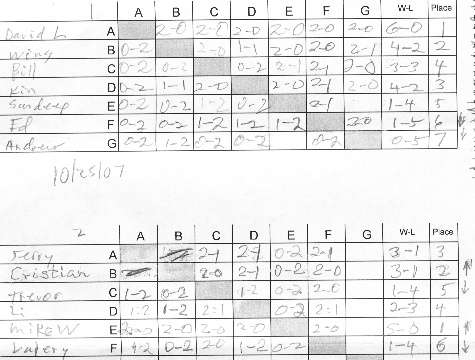 A B C D E F G W-L Place
David L A 2-0 2-0 2-0 2-0 2-0 2-0 6-0 1
Wing B 0-2 2-0 1-1 2-0 2-0 2-1 4-2 2
Bill C 0-2 0-2 0-2 2-1 2-1 2-0 3-3 4
Kin D 0-2 1-1 2-0 2-0 2-1 2-0 4-2 3
Sandeep E 0-2 0-2 1-2 0-2 2-1 1-4 5
Ed F 0-2 0-2 1-2 1-2 1-2 2-0 1-5 6
Andrew G 0-2 1-2 0-2 0-2 0-2 0-5 7
10/25/07
2
A B C D E F G W-L Place
Jerry A 2-1 2-1 0-2 2-1 3-1 3
Cristian B 2-0 2-1 0-2 2-0 3-1 2
Trevor C 1-2 0-2 1-2 0-2 2-0 1-4 5
Li D 1-2 1-2 2-1 0-2 2-1 2-3 4
Mike W E 2-0 2-0 2-0 2-0 2-0 5-0 1
Valery F 1-2 0-2 2-0 1-2 0-2 1-4 6